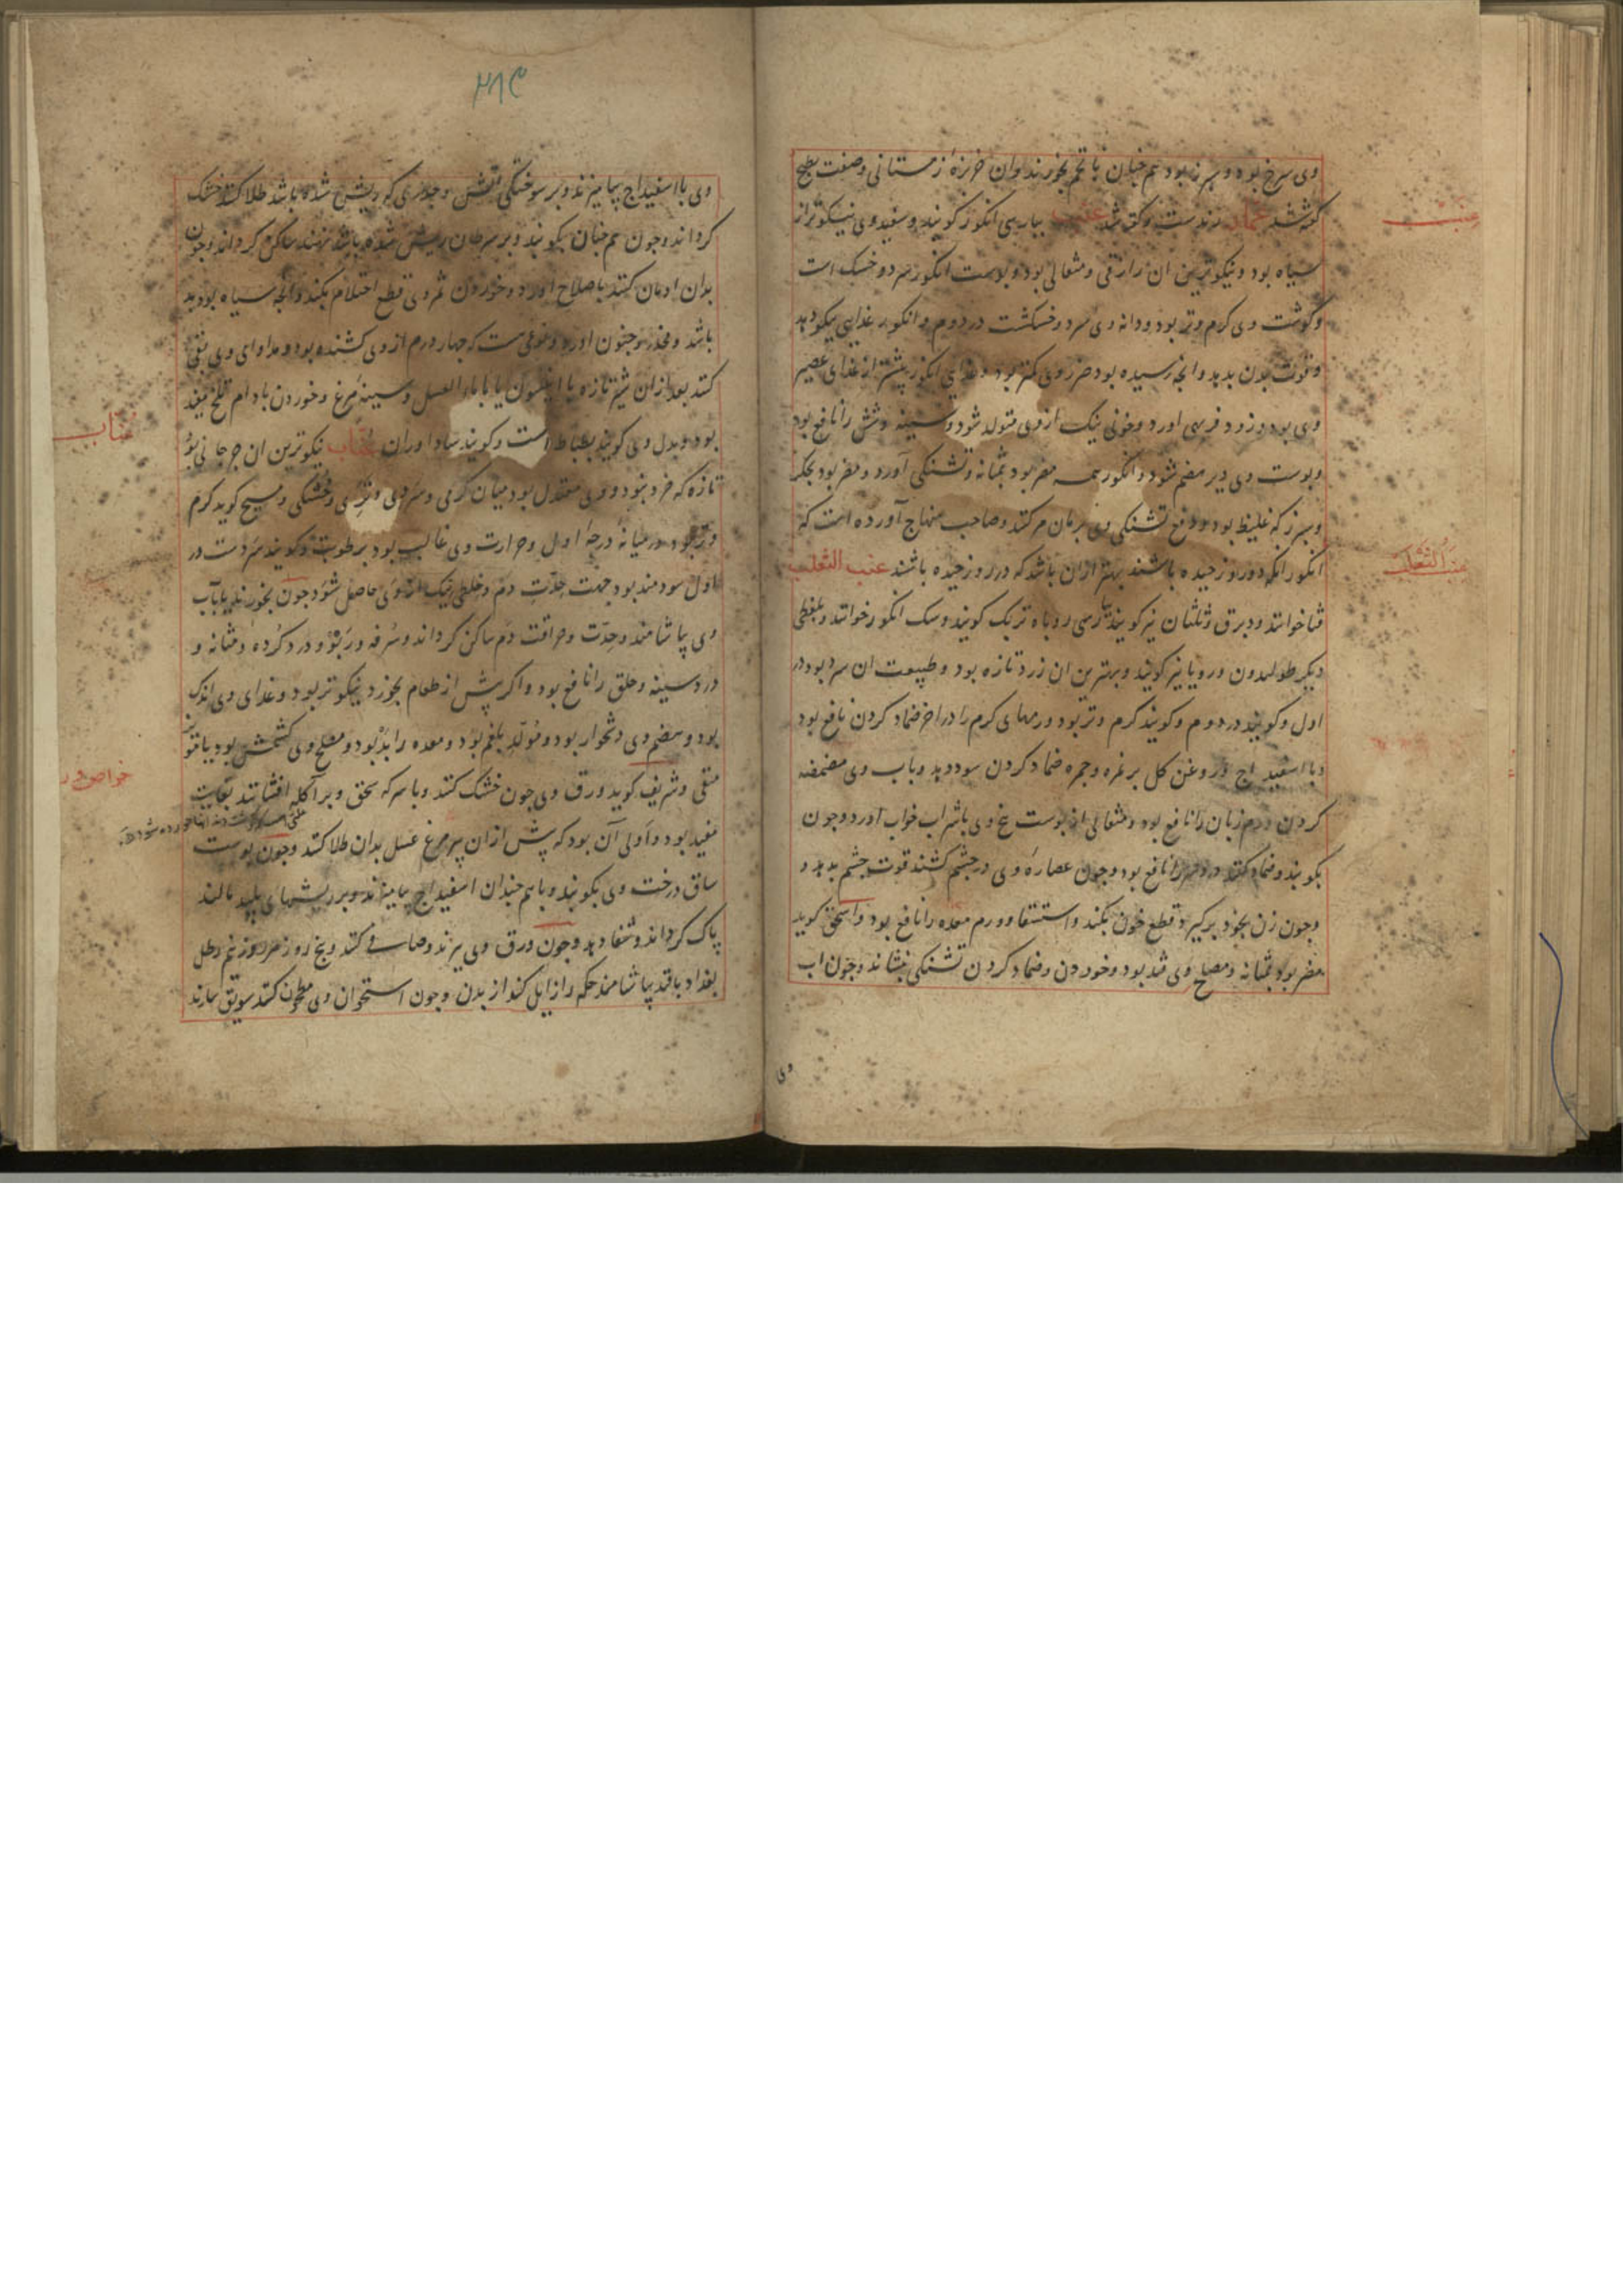 وی سرخ بود و سبز نیز بود هم چنان با تخم بخورند وان خربزهٔ زمستانی و صفت بطیخ
گفته شد
عنب
بپارسی انکور کویند و سفید وی نیکوتر از
سیاه بود و نیکوترین ان رازقی و مثقالی بود و پوست انکور سرد و خشک است
و کوشت وی کرم و تر بود و دانه وی سرد و خشکست در دوم و انکور غذایی نیکو دهد
و قوت بدن بدهد و انچه رسیده بود ضرر وی کمتر بود و غذای انکور بیشتر از غذای عصیر
وی بود و زود فربهی اورد و خونی نیک ازوی متولد شود و سینه و شش را نافع بود
و پوست وی دیر هضم شود و انکور همه مضر بود بمثانه و تشنکی آورد و مضر بود بجکر
و سپرز که غلیظ بود و دفع تشنکی وی برمان مز کنند و صاحب منهاج آورده است که
انکور انکه دو روز چیده باشند بهتر ازان باشد که در روز چیده باشند عنب الثعلب
فنا خوانند و برق و ثلثان نیز کویند بپارسی روباه تربک کویند و سک انکور خوانند و بلفظی
دیکر طولیدون و روپا نیز کویند و بهترین ان زرد تازه بود و طبیعت ان سرد بود در
اول و کویند در دوم و کویند کرم و تر بود ورمهای کرم را در اخر ضماد کردن نافع بود
و با اسفیداج و روغن کل بر نمره و جمره ضماد کردن سود دهد و باب وی مضمضه
کردن ورم زبان را نافع بود و مثقالی از پوست بیخ وی باشراب خواب اورد و چون
بکوبند و ضماد کنند درد سر را نافع بود و چون عصارهٔ وی در چشم کشند قوت چشم بدهد و
و چون زن بخود برکیرد قطع خون بکند و استسقا و ورم معده را نافع بود و اسحق کوید
مضر بود بمثانه و مصلح وی قند بود و خوردن و ضماد کردن تشنکی بنشاند و چون اب
وی
عنب
عنب الثعلب
۲۸۹
وی با اسفیداج بیامیزند و بر سوختکی اتش و جدری که ریش شده باشد طلا کنند خشک
کرداند و چون هم چنان بکوبند و بر سرطان ریش شده باشد نهند ساکن کرداند و چون
بدان ادمان کنند باصلاح اورد و خوردن ثمر وی قطع احتلام بکند و انچه سیاه بود بد
باشد و مخدر و جنون اورد و نوعی است که چهار درم از وی کشنده بود و مداوای وی بقی
کنند بعد ازان شیر تازه با انیسون یا با ماء العسل و سینهٔ مرغ و خوردن بادام تلخ مفید
بود و بدل وی کویند بطباط است و کویند ساداوران عناب نیکوترین ان جرجانی بود
تازه که خرد نبود و وی معتدل بود میان کرمی و سردی و تری و خشکی و مسیح کوید کرم
و تر بود در میانهٔ درجهٔ اول و حرارت وی غالب بود بر طوبت و کویند سردست در
اول سودمند بود جهت حدّت دم و خلطی نیک از وی حاصل شود چون بخورند یا آب
وی بیاشامند و حدّت و حراقت دم ساکن کرداند و سرفه و ربو و درد کرده و مثانه و
درد سینه و حلق را نافع بود و اکر پیش از طعام بخورد نیکوتر بود و غذای وی اندک
بود و هضم وی دشخوار بود و مولّد بلغم بود و معده را بد بود و مصلح وی کشمش بود یا مویز
منقی و شریف کوید ورق وی چون خشک کنند و با سرکه سحق و بر آکله افشانند بغایت
مفید بود و اولی آن بود که پیش ازان پر مرغ عسل بدان طلا کنند و چون پوست
ساق درخت وی بکوبند و باهم چندان اسفیداج بیامیزند و بر ریشهای پلید مالند
پاک کرداند و شفا دهد و چون ورق وی بپزند و صافی کنند و پنج روز هر روز نیم رطل
بغداد باقند بیاشامند حکه را زایل کند از بدن و چون استخوان وی مطحون کنند سویق سازند
عناب
خواص